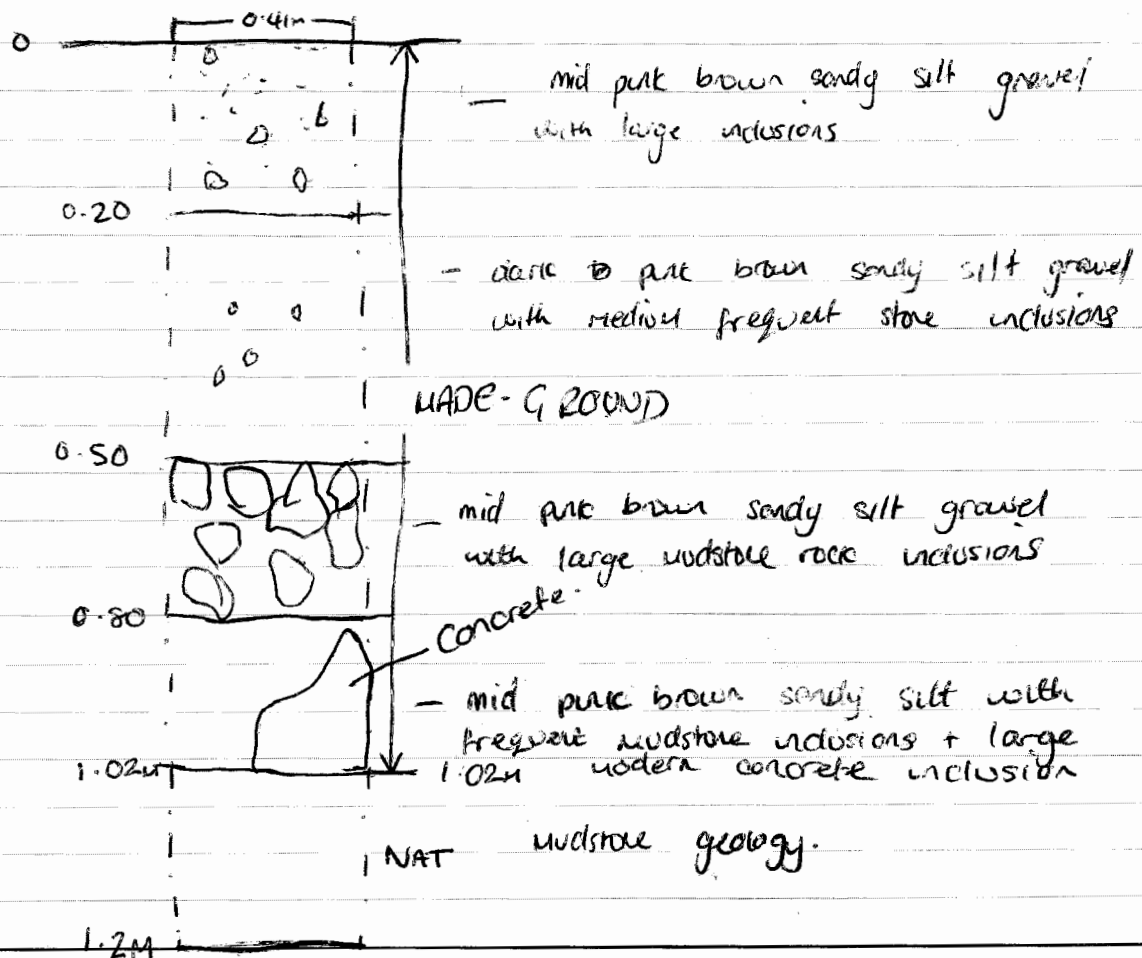 0.41m
0
mid pink brown sandy silt gravel
with large inclusions
0.20
- dark pink brown sandy silt gravel
with medium frequent stone inclusions
MADE-GROUND
0.50
- mid pink brown sandy silt gravel
with large mudstone rock inclusions
0.80
Concrete.
- mid pink brown sandy silt with
frequent mudstone inclusions + large
modern concrete inclusion
1.02m
1.02m
NAT mudstone geology.
1.2M